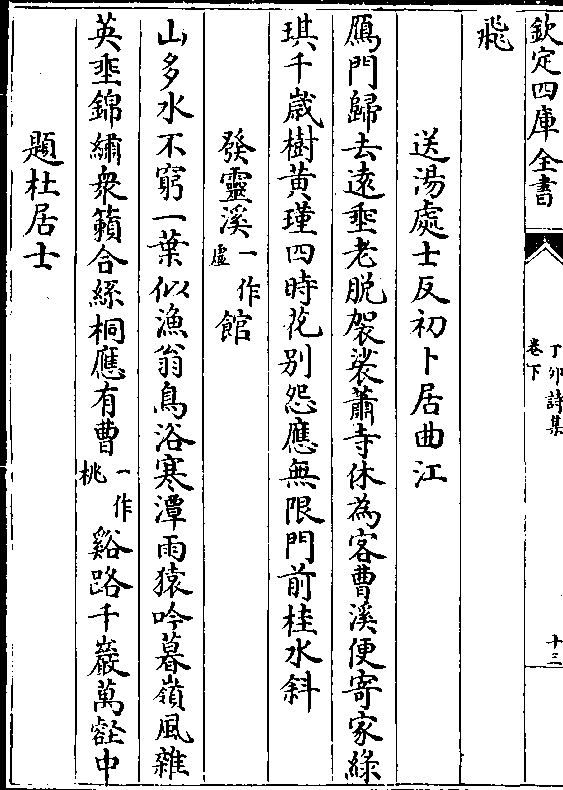 欽定四庫全書
丁卯詩集
卷下
十三
飛
送湯處士反初卜居曲江
鴈門歸去遠垂老脱袈裟蕭寺休為客曹溪便寄家綠
琪千歲樹黃瑾四時花别怨應無限門前桂水斜
發靈溪一作虛館
山多水不窮一葉似漁翁鳥浴寒潭雨猿吟暮嶺風雜
英垂錦繡衆籟合絲桐應有曹一作桃谿路千巖萬壑中
題杜居士